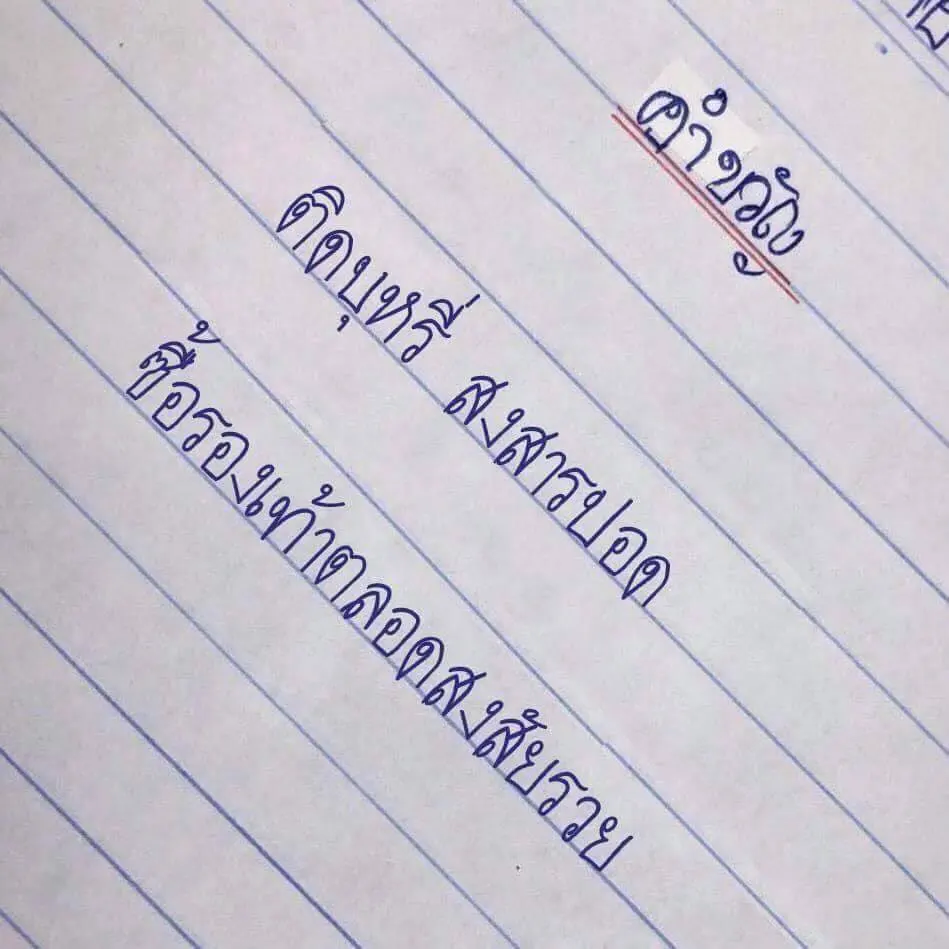 คำขวัญ
ติดบุหรี่ สงสารปอด
ซื้อรองเท้าตลอดสงสัยรวย